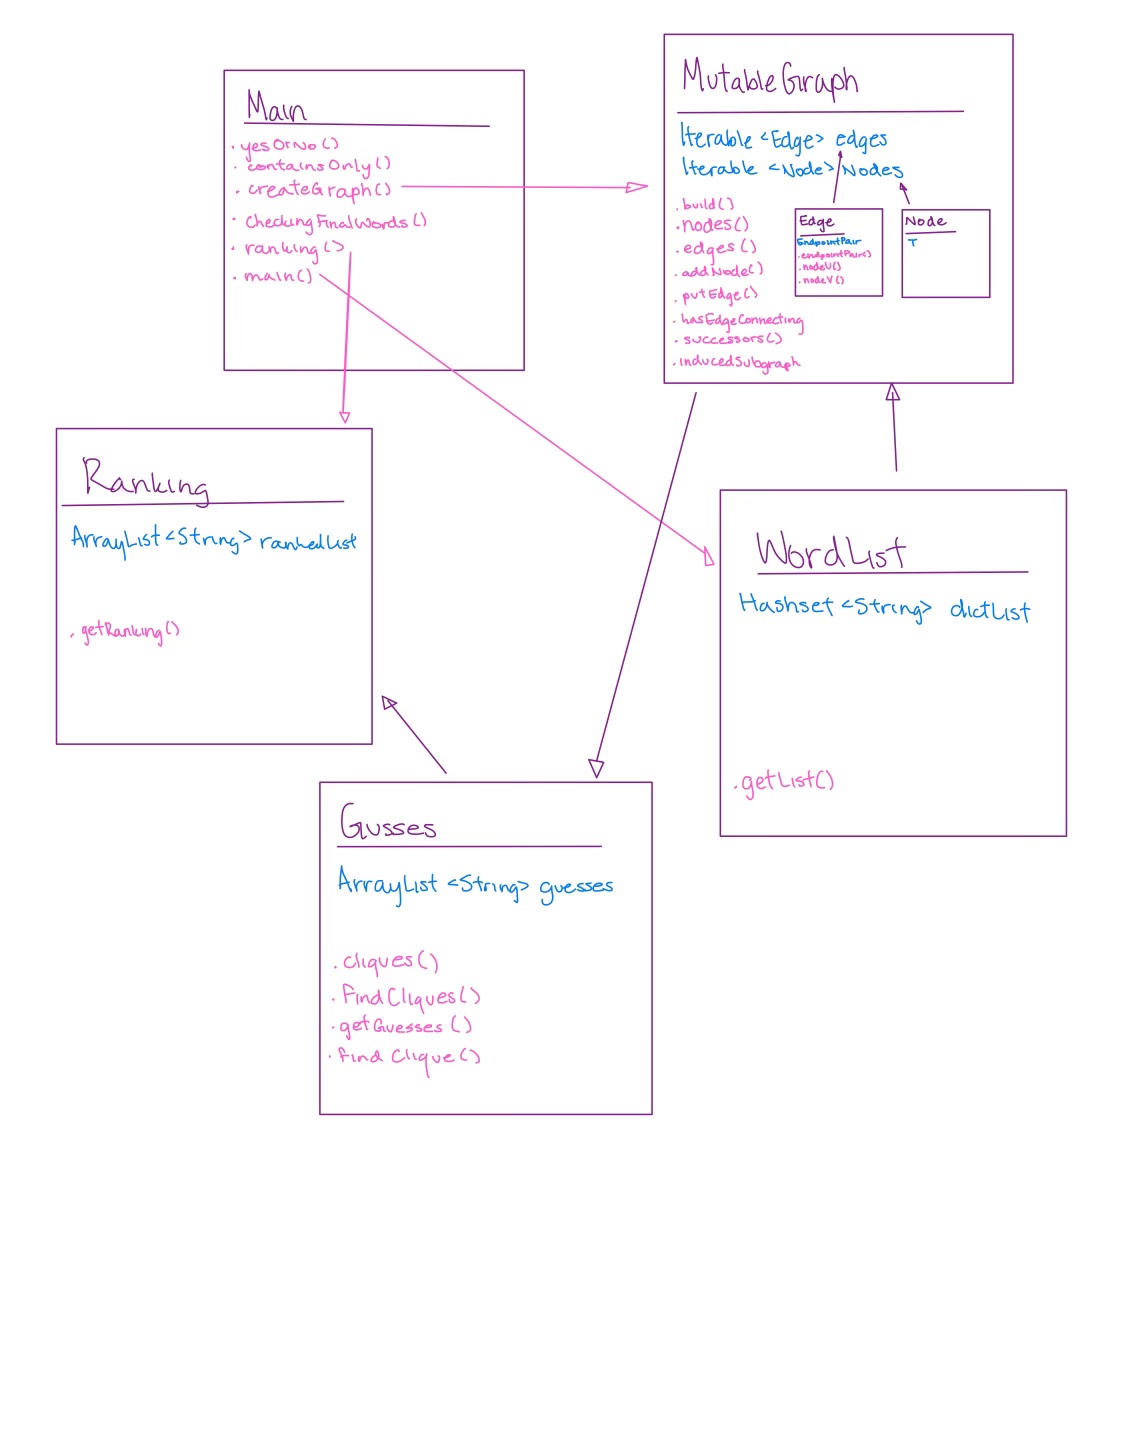 Main
. yesOrNo()
. containsOnly()
. createGraph()
. CheckingFinalWords()
. ranking()
. main()
MutableGraph
Iterable <Edge> edges
Iterable <Node> Nodes
. build()
. nodes()
. edges()
. addNode()
. putEdge()
. hasEdgeConnecting
. successors()
. inducedSubgraph
Edge
EndpointPair
. endpointPair()
. nodeU()
. nodeV()
Node
T
Ranking
ArrayList <String> rankedList
. getRanking()
WordList
Hashset <String> dictList
. getList()
Gusses
ArrayList <String> guesses
. cliques()
. findCliques()
. getGuesses()
. find Clique()